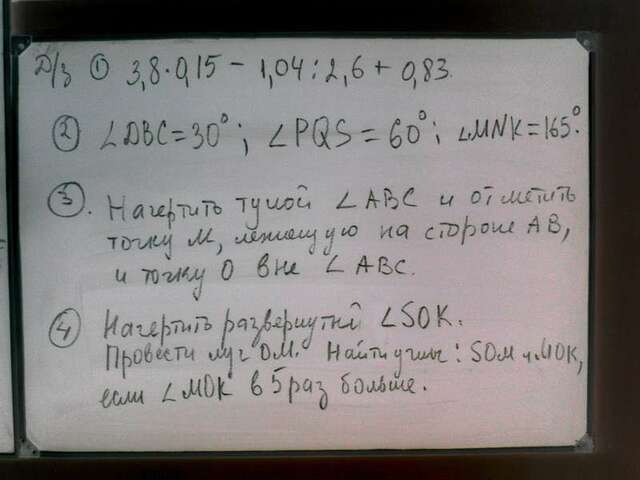 Д/з ① 3,8·0,15 - 1,04:2,6 + 0,83.
② ∠DBC=30°; ∠PQS=60°; ∠MNK=165°.
③. Начертить тупой ∠ABC и отметить
точку M, лежащую на стороне AB,
и точку O вне ∠ABC.
④ Начертить развернутый ∠SOK.
Провести луч OM. Найти углы: SOM и MOK,
если ∠MOK в 5 раз больше.